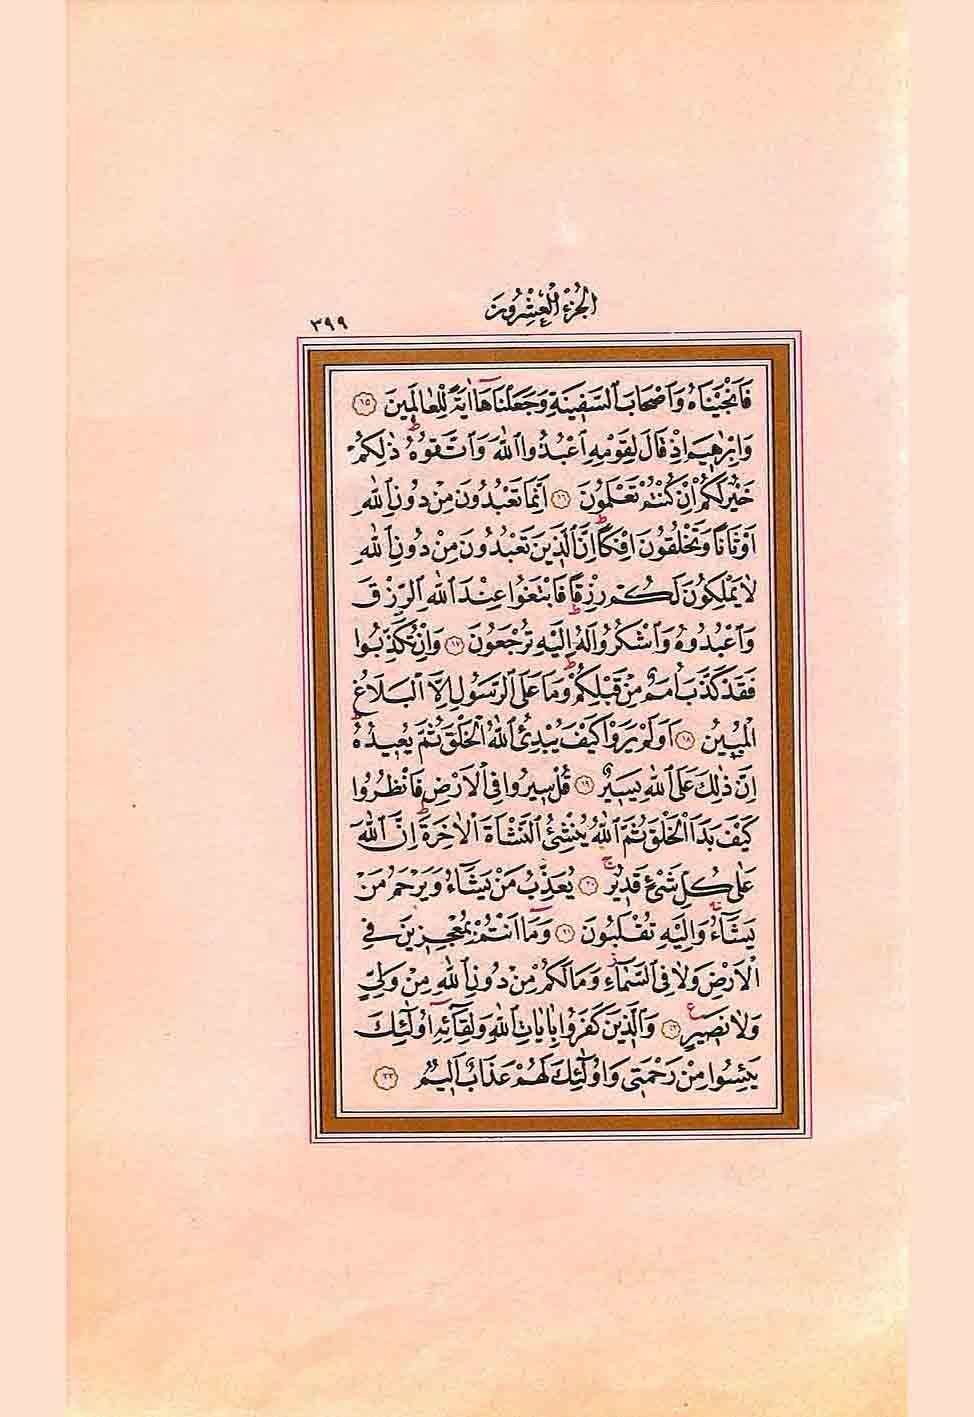 الجزء العشرون
٣٩٩
فَاَنْجَيْنَاهُ وَاَصْحَابَ السَّفٖينَةِ وَجَعَلْنَاهَٓا اٰيَةً لِلْعَالَمٖينَ ﴿١٥﴾
وَاِبْرٰهٖيمَ اِذْ قَالَ لِقَوْمِهِ اعْبُدُوا اللّٰهَ وَاتَّقُوهُؕ ذٰلِكُمْ
خَيْرٌ لَكُمْ اِنْ كُنْتُمْ تَعْلَمُونَ ﴿١٦﴾ اِنَّمَا تَعْبُدُونَ مِنْ دُونِ اللّٰهِ
اَوْثَانًا وَتَخْلُقُونَ اِفْكًاؕ اِنَّ الَّذٖينَ تَعْبُدُونَ مِنْ دُونِ اللّٰهِ
لَا يَمْلِكُونَ لَكُمْ رِزْقًا فَابْتَغُوا عِنْدَ اللّٰهِ الرِّزْقَ
وَاعْبُدُوهُ وَاشْكُرُوا لَهُؕ اِلَيْهِ تُرْجَعُونَ ﴿١٧﴾ وَاِنْ تُكَذِّبُوا
فَقَدْ كَذَّبَ اُمَمٌ مِنْ قَبْلِكُمْؕ وَمَا عَلَى الرَّسُولِ اِلَّا الْبَلَاغُ
الْمُبٖينُ ﴿١٨﴾ اَوَلَمْ يَرَوْا كَيْفَ يُبْدِئُ اللّٰهُ الْخَلْقَ ثُمَّ يُعٖيدُهُؕ
اِنَّ ذٰلِكَ عَلَى اللّٰهِ يَسٖيرٌ ﴿١٩﴾ قُلْ سٖيرُوا فِي الْاَرْضِ فَانْظُرُوا
كَيْفَ بَدَاَ الْخَلْقَ ثُمَّ اللّٰهُ يُنْشِئُ النَّشْاَةَ الْاٰخِرَةَؕ اِنَّ اللّٰهَ
عَلٰى كُلِّ شَيْءٍ قَدٖيرٌۚ ﴿٢٠﴾ يُعَذِّبُ مَنْ يَشَٓاءُ وَيَرْحَمُ مَنْ
يَشَٓاءُۚ وَاِلَيْهِ تُقْلَبُونَ ﴿٢١﴾ وَمَٓا اَنْتُمْ بِمُعْجِزٖينَ فِي
الْاَرْضِ وَلَا فِي السَّمَٓاءِؗ وَمَا لَكُمْ مِنْ دُونِ اللّٰهِ مِنْ وَلِيٍّ
وَلَا نَصٖيرٍ ﴿٢٢﴾ وَالَّذٖينَ كَفَرُوا بِاٰيَاتِ اللّٰهِ وَلِقَٓائِهٖٓ اُولٰٓئِكَ
يَئِسُوا مِنْ رَحْمَتٖي وَاُولٰٓئِكَ لَهُمْ عَذَابٌ اَلٖيمٌ ﴿٢٣﴾